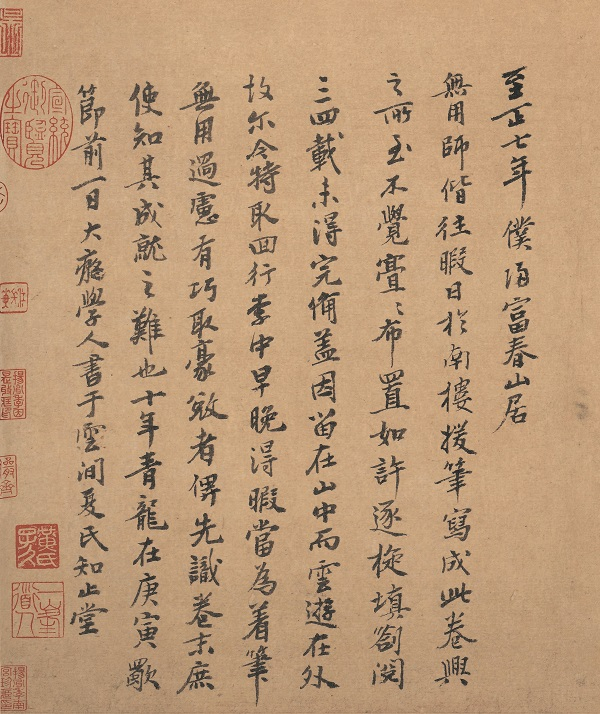 至正七年僕歸富春山居
無用師偕往暇日於南樓援筆寫成此卷興
之所至不覺亹〻布置如許逐旋填劄閱
三四載未得完備盖因留在山中而雲遊在外
故尔今特取回行李中早晚得暇當為着筆
無用過慮有巧取豪敓者俾先識卷末庶
使知其成就之難也十年青龍在庚寅歜
節前一日大癡學人書于雲間夏氏知止堂
宣統御覽之寶
黃氏子久
一峯道人